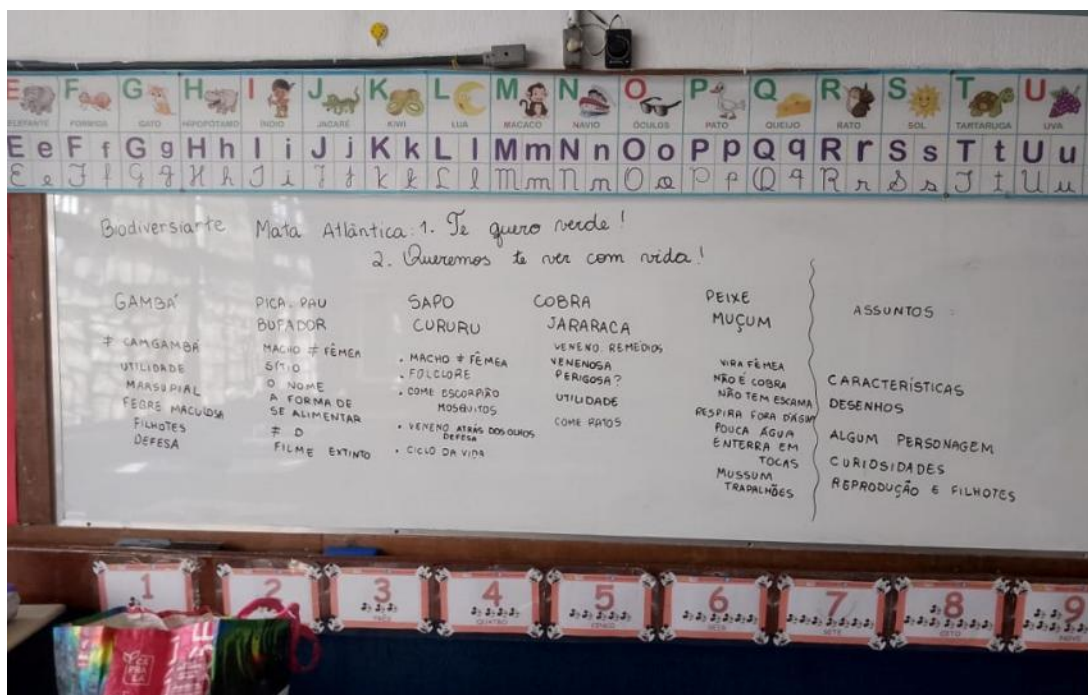 E F G H I J K L M N O P Q R S T U
ELEFANTE FORMIGA GATO HIPOPÓTAMO ÍNDIO JACARÉ KIWI LUA MACACO NAVIO ÓCULOS PATO QUEIJO RATO SOL TARTARUGA UVA
E e F f G g H h I i J j K k L l M m N n O o P p Q q R r S s T t U u
E e F f G g H h I i J j K k L l M m N n O o P p Q q R r S s T t U u
Biodiversiarte Mata Atlântica: 1. Te quero verde!
2. Queremos te ver com vida!
GAMBÁ
≠ CAMGAMBÁ
UTILIDADE
MARSUPIAL
FEBRE MACULOSA
FILHOTES
DEFESA
PICA-PAU
BUFADOR
MACHO ≠ FÊMEA
SÍTIO
O NOME
A FORMA DE
SE ALIMENTAR
≠ D
FILME EXTINTO
SAPO
CURURU
. MACHO ≠ FÊMEA
. FOLCLORE
. COME ESCORPIÃO
MOSQUITOS
. VENENO ATRÁS DOS OLHOS
DEFESA
. CICLO DA VIDA
COBRA
JARARACA
VENENO REMÉDIOS
VENENOSA
PERIGOSA?
UTILIDADE
COME RATOS
PEIXE
MUÇUM
VIRA FÊMEA
NÃO É COBRA
NÃO TEM ESCAMA
RESPIRA FORA D'ÁGUA
POUCA ÁGUA
ENTERRA EM
TOCAS
MUSSUM
TRAPALHÕES
ASSUNTOS :
CARACTERÍSTICAS
DESENHOS
ALGUM PERSONAGEM
CURIOSIDADES
REPRODUÇÃO E FILHOTES
1 2 3 4 5 6 7 8 9
TRÊS QUATRO CINCO SEIS SETE OITO NOVE